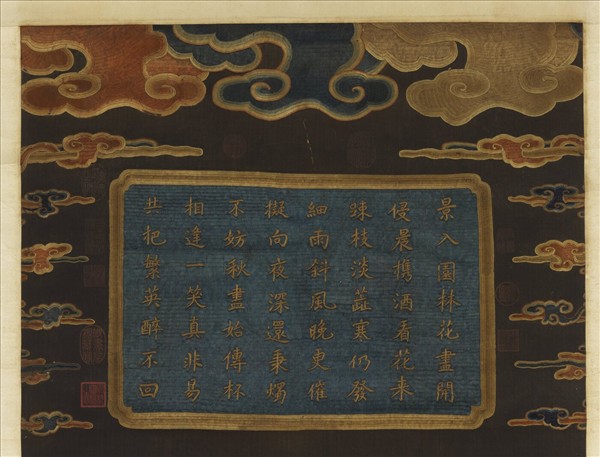 景入園林花盡開
侵晨携酒看花来
踈枝淡蘂寒仍發
細雨斜風晚更催
擬向夜深還秉燭
不妨秋盡始傳杯
相逢一笑真非易
共把繁英醉不回